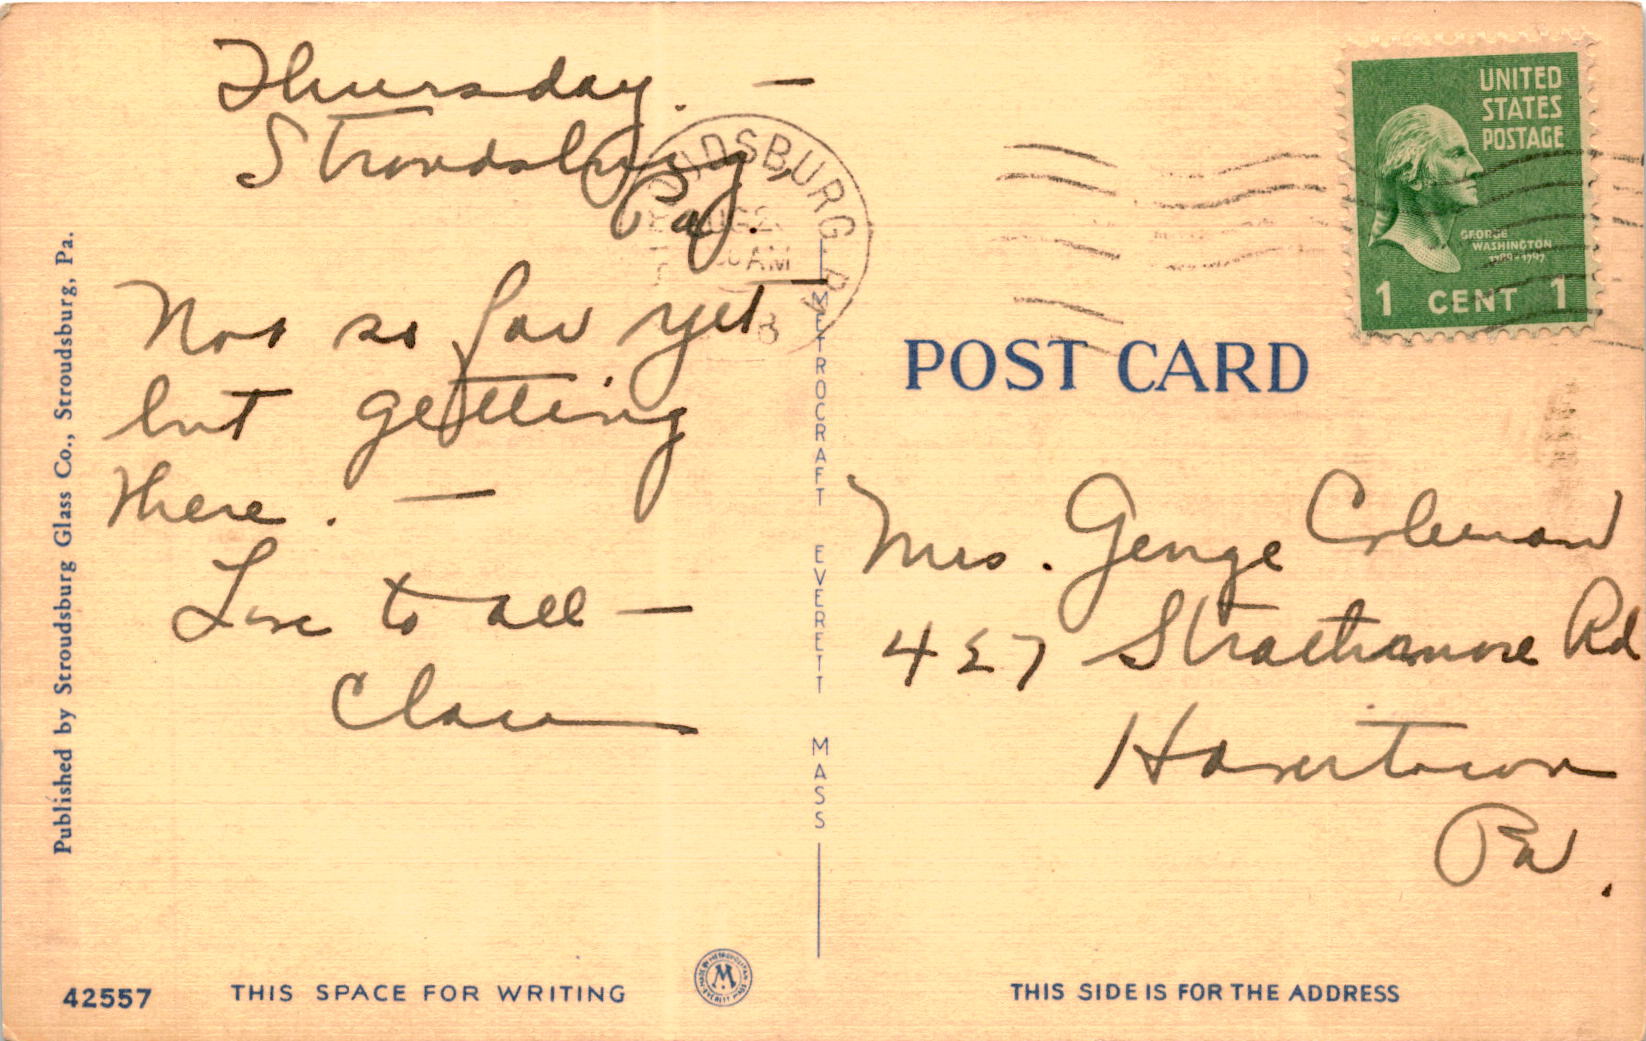 Thursday. —
Stroudsburg,
Pa.
Not so far yet —
but getting
there. —
Love to all —
Clara
Published by Stroudsburg Glass Co., Stroudsburg, Pa.
42557
THIS SPACE FOR WRITING
METROCRAFT EVERETT MASS
UDSBURG. PA
AUG 2
AM
UNITED
STATES
POSTAGE
GEORGE
WASHINGTON
1789-1797
1 CENT 1
POST CARD
Mrs. George Coleman
427 Strathmore Rd
Havertown
Pa.
THIS SIDE IS FOR THE ADDRESS
M